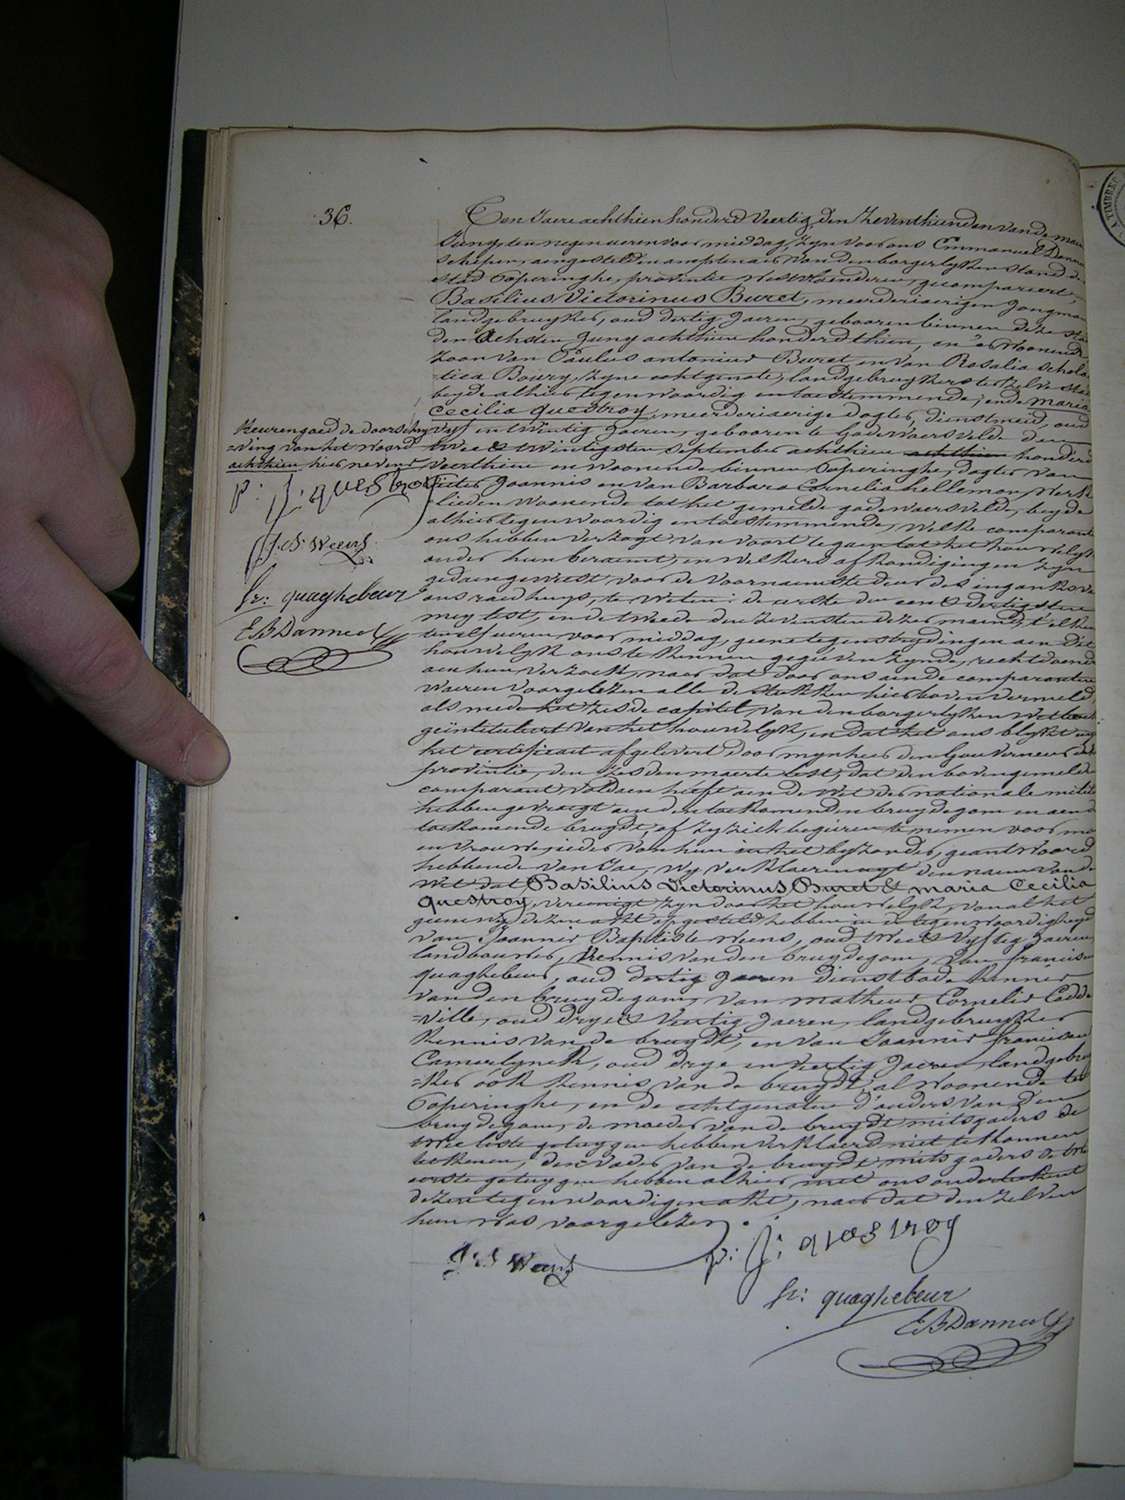 36.
Ten Jaere achthien honderd Veertig, den Zeventhienden van de maend
Juny, ten negen ueren voor middag, Zyn voor ons Emmanuel
Schepen, aengestelden ampten aer van den borgerlyken Stand der
Stad Poperinghe, provintie WestVlaenderen, gecompareert,
Basilius Victorinus Buret, meerderjaerigen Jongman
landgebruyker, oud dertig Jaeren, gebooren binnen deze stad
den Achsten Juny achthien honderd thien, en er Woonende
Zoon van Paulus antonius Buret en van Rosalia Schola
=tica Boury, Zyne echtgenote, landgebruykers ter Zelve Stad
beyde alhier tegenwoordig en toestemmende; ende Maria
Cecilia Questroy, meerderjaerige dogter, dienstmeid, oud
Vyf en twintig Jaeren, gebooren te Godewaersvelde den
twee & twintigsten September achthien achthien honderd
Veerthien en Woonende binnen Poperinghe, dogter van
Pieter Joannis en van Barbara Cornelia hellemon, Werk
lieden Woonende tot het gemelde godewaersvelde, beyde
alhier tegenwoordig en toestemmende, Welke comparanten
ons hebben Verzogt van voort te gaen tot het houwelyk
onder hun beraemt, en welkers afkondigingen Zyn
gedaen geweest voor de Voornaemste deur des ingank van
ons raedhuys, te weten: de eerste den een & dertigsten
mey lest, en de tweede den Zevensten dezer maend, t'elken
twelf ueren voor middag, geene tegenstrydingen aen dit
houwelyk ons te kennen gegeven Zynde, rechtdoende
aen hun verzoek, naer dat door ons aen de comparanten
Waeren voorgelezen alle de stukken hier boven vermeld
als mede het Zesde capitel van den borgerlyken Wetboek
geintituleert Van het houwelyk, en dat het ons blykt uyt
het certificaet afgelevert door mynheer den Gouverneur der
provintie, den Zesden maerte lest, dat den bovengemelden
comparant voldaen heeft aen de Wet der nationale militie
hebben gevraegt aen den toekomenden bruydegom en aen de
toekomende bruydt, of Zy Zich begeeren te nemen voor man
en vrouwe, ieder van hun in het byzonder, geantwoord
hebbende van Jae, Wy verklaeren uyt den naem van de
Wet dat Basilius Victorinus Buret & maria Cecilia
Questroy, vereenigt Zyn door het houwelyk, van al het
geene wy dezen akt opgesteld hebben in de tegenwoordigheyd
van Joannis Baptiste Weens, oud twee & Vyftig Jaeren
landbouwer, kennis van den bruydegom, van francis
quaghebeur, oud dertig Jaeren Dienstbode kennis
van den bruydegom, van matheus Cornelis Cadde
=ville, oud dry & Veertig Jaeren, landgebruyker
kennis van de bruydt, en van Joannis franciscus
Camerlynck, oud drye en veertig Jaeren, landgebruy
=ker ook kennis van de bruydt, al woonende ter
Poperinghe, en de echtgenoten d'ouders van den
bruydegom, de moeder van de bruydt mitsgaders de
twee leste getuygen hebben verklaerd niet te konnen
teekenen, den vader van de bruydt mitsgaders de twee
eerste getuygen hebben alhier met ons onderteekent
dezen tegenwoordigen akt, naer dat den Zelven
hun was voorgelezen.
Keuren goed de doorschry
=ving van het woord
achthien hier nevens
p: J: questroy
J. B. Weens
fr: quaghebeur
E B Danneel
J. B Weens
p: J: questroy
fr: quaghebeur
E B Danneel